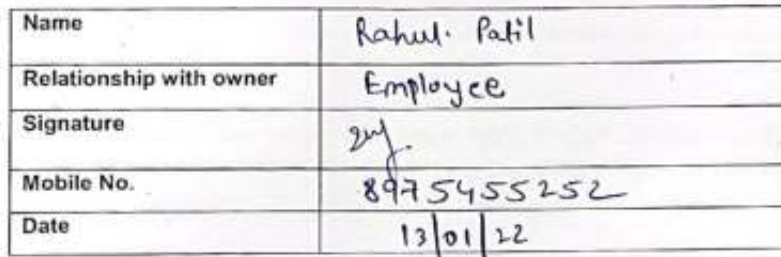 Name Rahul. Patil
Relationship with owner Employee
Signature
Mobile No. 8975455252
Date 13/01/22